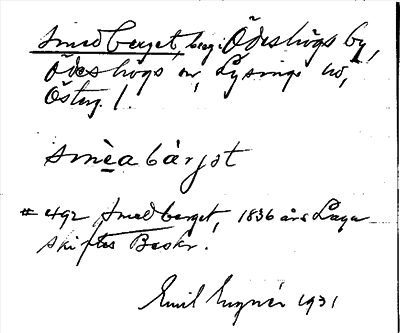 Smedberget, berg: Ödeshögs by,
Ödeshögs sn, Lysings hd,
Österg. l.
smèabárjət
# 492 Smedberget, 1836 års Laga
skiftes Beskr.
Emil 1931